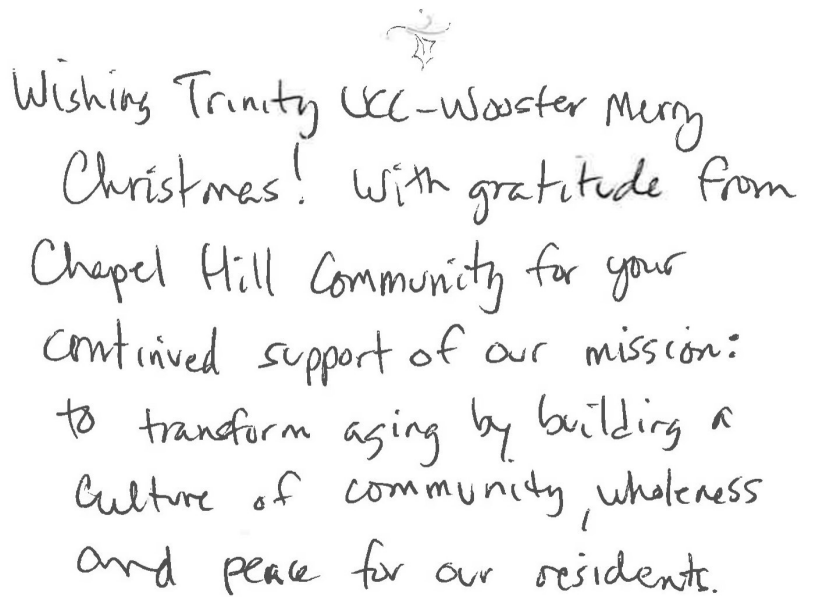 Wishing Trinity UCC-Wooster Merry
Christmas! With gratitude from
Chapel Hill Community for your
continued support of our mission:
to transform aging by building a
culture of community, wholeness
and peace for our residents.